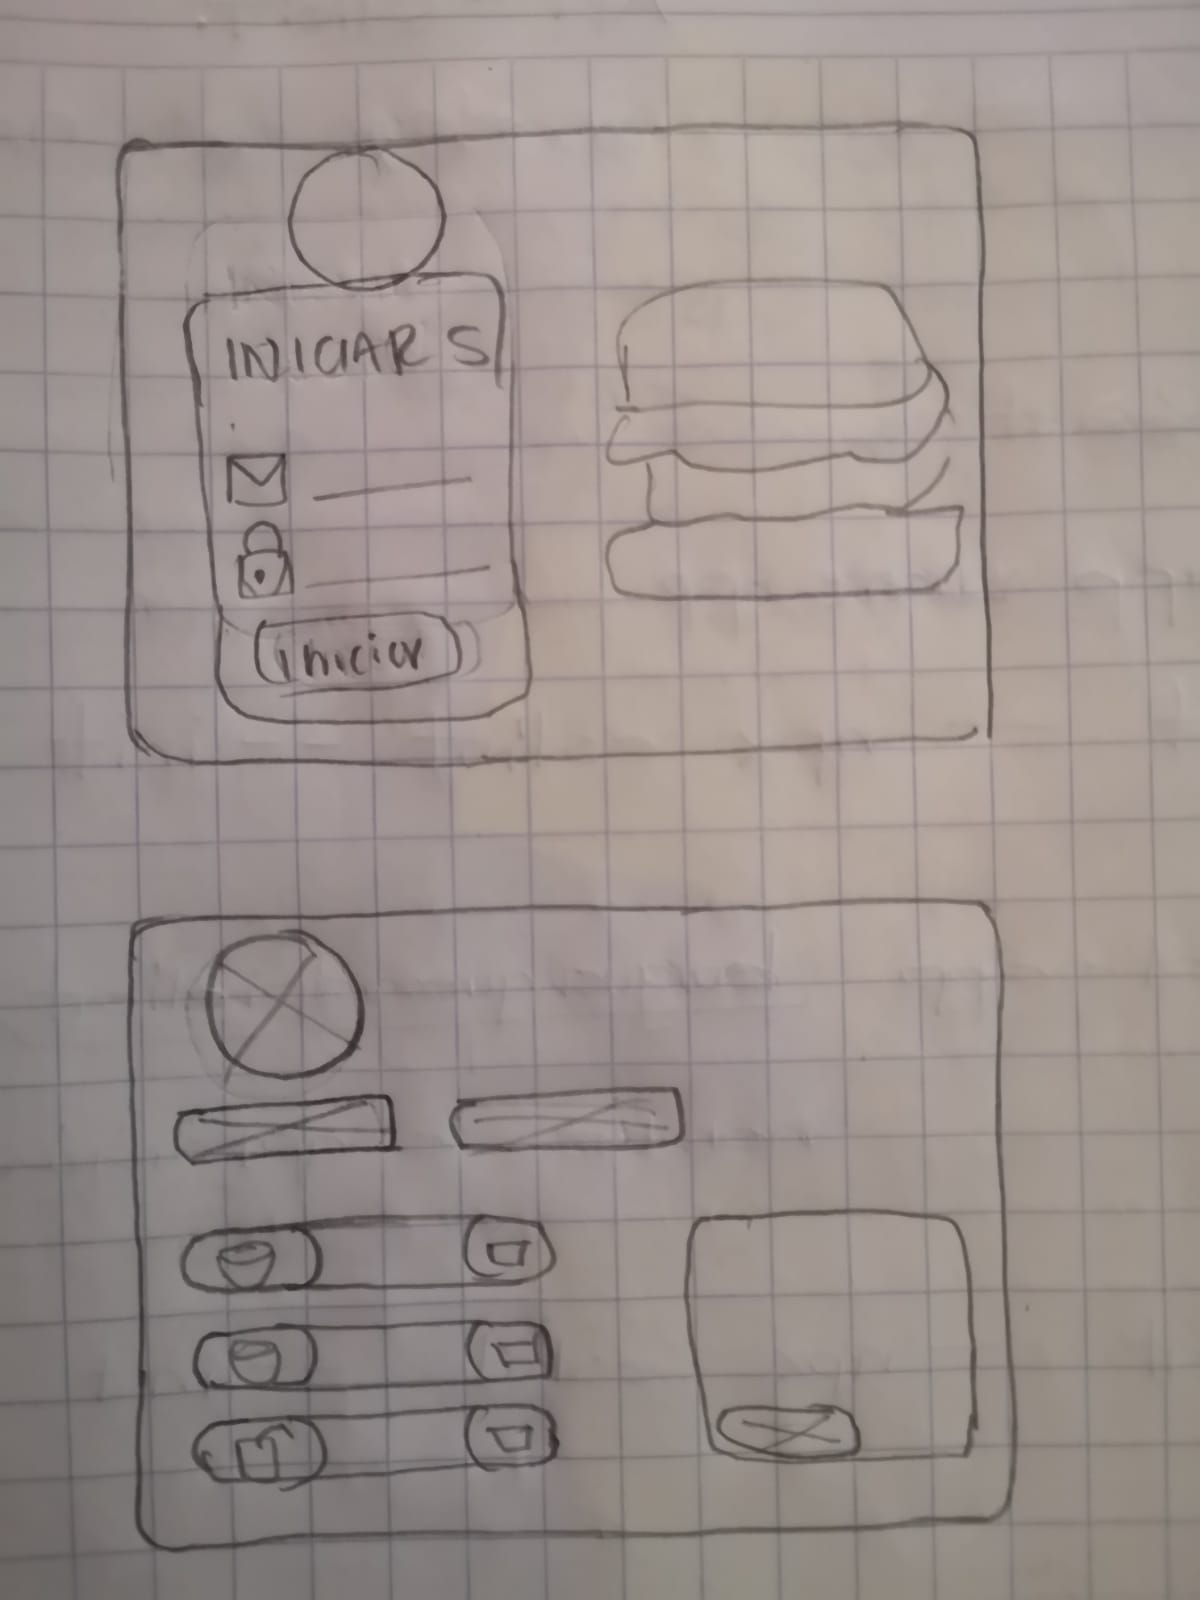 INICIAR S
iniciar